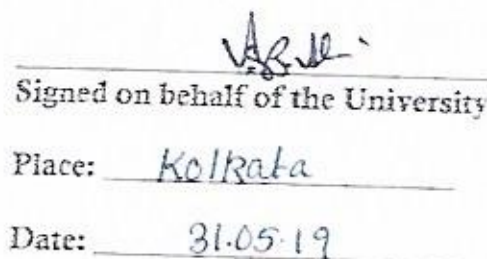 Signed on behalf of the University
Place: Kolkata
Date: 31.05.19